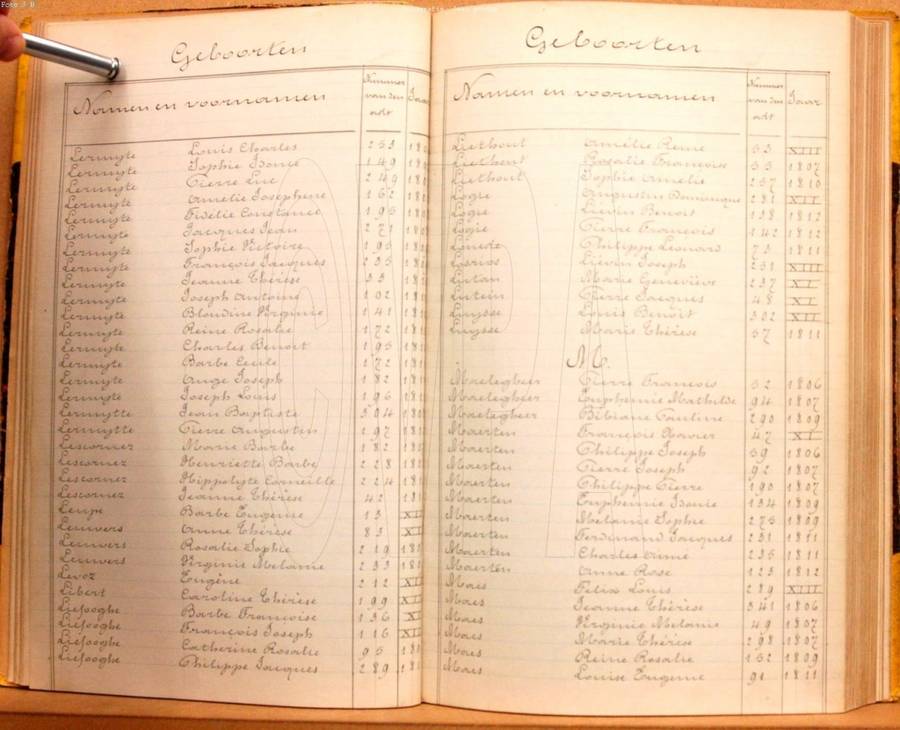 Foto J B
Geboorten
Namen en voornamen Nummer van den act Jaar
Lermyte Louis Charles 253 18
Lermyte Sophie Isonie 149 18
Lermyte Pierre Luc 249 18
Lermyte Amelie Josephine 152 18
Lermyte Fidélie Constance 195 18
Lermyte Jacques Jean 271 18
Lermyte Sophie Victoire 195 18
Lermyte François Jacques 235 18
Lermyte Jeanne Thérèse 33 18
Lermyte Joseph Antoine 102 18
Lermyte Blondine Virginie 141 18
Lermyte Reine Rosalie 172 18
Lermyte Charles Benoit 195 18
Lermyte Barbe Cecile 272 18
Lermyte Ange Joseph 182 18
Lermyte Joseph Louis 196 18
Lermytte Jean Baptiste 394 18
Lermytte Pierre Augustin 197 18
Lescornez Marie Barbe 182 18
Lescornez Henriette Barbe 228 18
Lescornez Hippolyte Corneille 224 18
Lescornez Jeanne Thérèse 42 18
Leupe Barbe Eugenie 13
Leuwers Anne Thérèse 83
Leuwers Rosalie Sophie 219 18
Leuwers Virginie Melanie 233 18
Levoz Eugène 212
Libert Caroline Thérèse 199
Liefooghe Barbe Françoise 136
Liefooghe François Joseph 116
Liefooghe Catherine Rosalie 95 18
Liefooghe Philippe Jacques 289 18
Geboorten
Namen en voornamen Nummer van den act Jaar
Liethout Amélie Reine 53 XIII
Liethout Rosalie Françoise 33 1807
Liethout Sophie Amelie 257 1810
Logie Augustin Dominique 281 XII
Logie Liévin Benoit 138 1812
Logie Pierre François 142 1812
Philippe Leonard 73 1811
Liévin Joseph 251 XIII
Lutan Marie Geneviève 237 XI
Lutein Pierre Jacques 48 XI
Luysse Louis Benoit 302 XII
Luysse Marie Thérèse 57 1811
M.
Maelegheer Pierre François 52 1806
Maelegheer Euphemie Mathilde 94 1807
Maelegheer Bibiane Pauline 290 1809
Maerten François Xavier 47 XI
Maerten Philippe Joseph 59 1806
Maerten Pierre Joseph 92 1807
Maerten Philippe Pierre 190 1807
Maerten Euphemie Isonie 134 1809
Maerten Melanie Sophie 275 1809
Maerten Ferdinand Jacques 231 1811
Maerten Charles Aimé 235 1811
Maerten Anne Rose 123 1812
Maes Félix Louis 289 XIII
Maes Jeanne Thérèse 341 1806
Maes Virginie Melanie 49 1807
Maes Marie Thérèse 298 1807
Maes Reine Rosalie 152 1809
Maes Louise Eugenie 91 1811